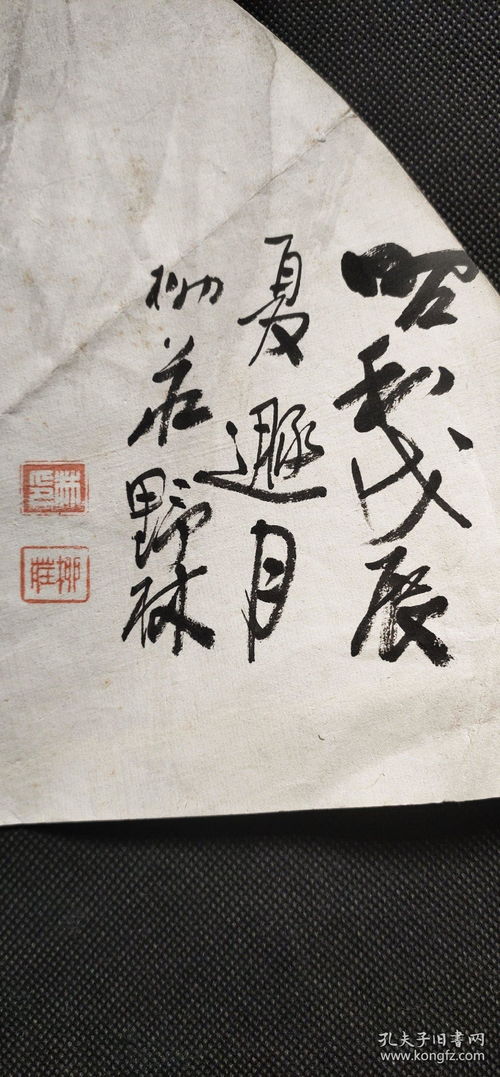 昭和戊辰
夏遯月
柳荘野林
林印
柳莊
孔夫子旧书网
www.kongfz.com